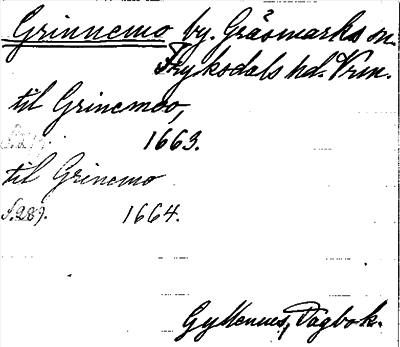 Grinnemo by. Gräsmarks sn.
Fryksdals hd. Vrm.
til Grinemoo,
1663.
til Grinemo
S. 289. 1664.
Gyllenius, Dagbok.